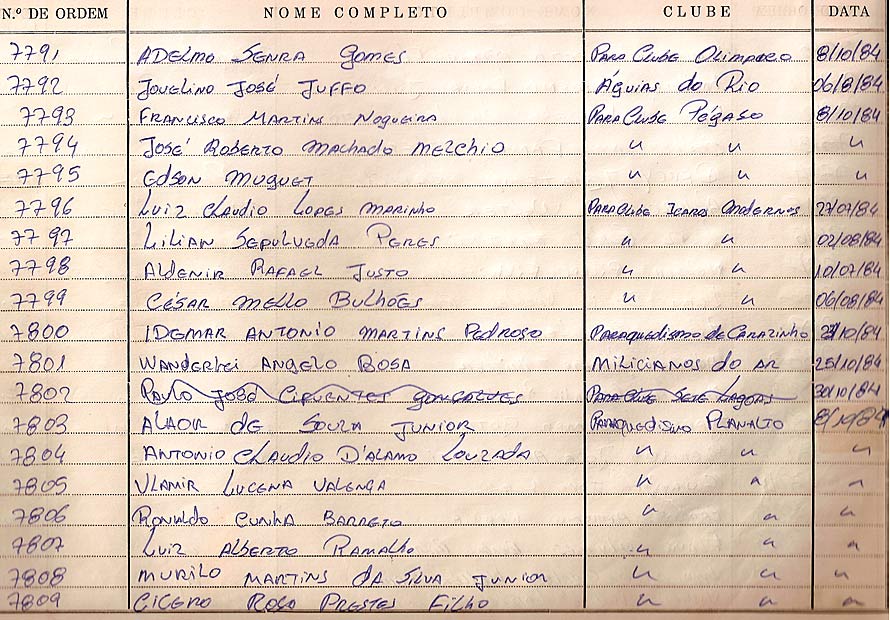 N.º DE ORDEM NOME COMPLETO CLUBE DATA
7791 ADELMO SENRA GOMES PARA CLUBE OLIMPRO 8/10/84
7792 JOVELINO JOSÉ JUFFO ÁGUIAS DO RIO 06/8/84
7793 FRANCISCO MARTINS NOGUEIRA PARA CLUBE PÉGASO 8/10/84
7794 JOSÉ ROBERTO MACHADO MELCHIO " " "
7795 EDSON MUGUET " " "
7796 LUIZ CLAUDIO LOPES MARINHO PARACLUBE ICAROS MODERNOS 27/07/84
7797 LILIAN SEPULVEDA PERES " " 02/08/84
7798 ALDENIR RAFAEL JUSTO " " 10/07/84
7799 CÉSAR MELLO BULHÕES " " 06/08/84
7800 IDEMAR ANTONIO MARTINS PEDROSO PARAQUEDISMO DE CARAZINHO /10/84
7801 WANDERLEI ANGELO BOSA MILICIANOS DO AR 25/10/84
7802 PAULO JOSÉ CIFUENTES GONÇALVES PARA CLUBE SETE LAGOAS 30/10/84
7803 ALAOR DE SOUZA JUNIOR PARAQUEDISMO PLANALTO 8/10/84
7804 ANTONIO CLAUDIO D'ALAMO LOUZADA " " "
7805 VLAMIR LUCENA VALENÇA " " "
7806 RONALDO CUNHA BARRETO " " "
7807 LUIZ ALBERTO RAMALHO " " "
7808 MURILO MARTINS DA SILVA JUNIOR " " "
7809 CICERO ROSO PRESTES FILHO " " "